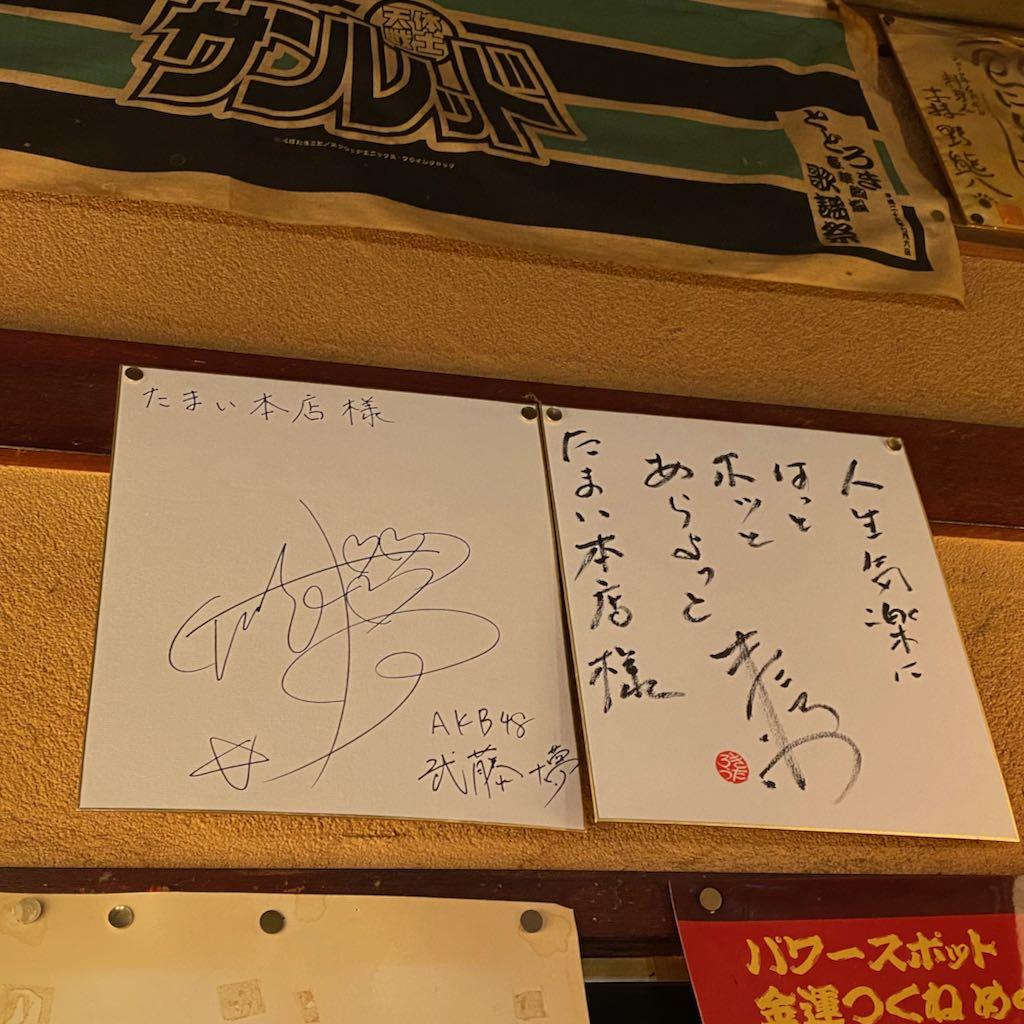 天体
戦士
サンレッド
とどろき
歌謡祭
たまい本店様
AKB48
武藤十夢
人生気楽に
ほっと
ホッと
あらよっと
たまい本店様
パワースポット
金運つくね